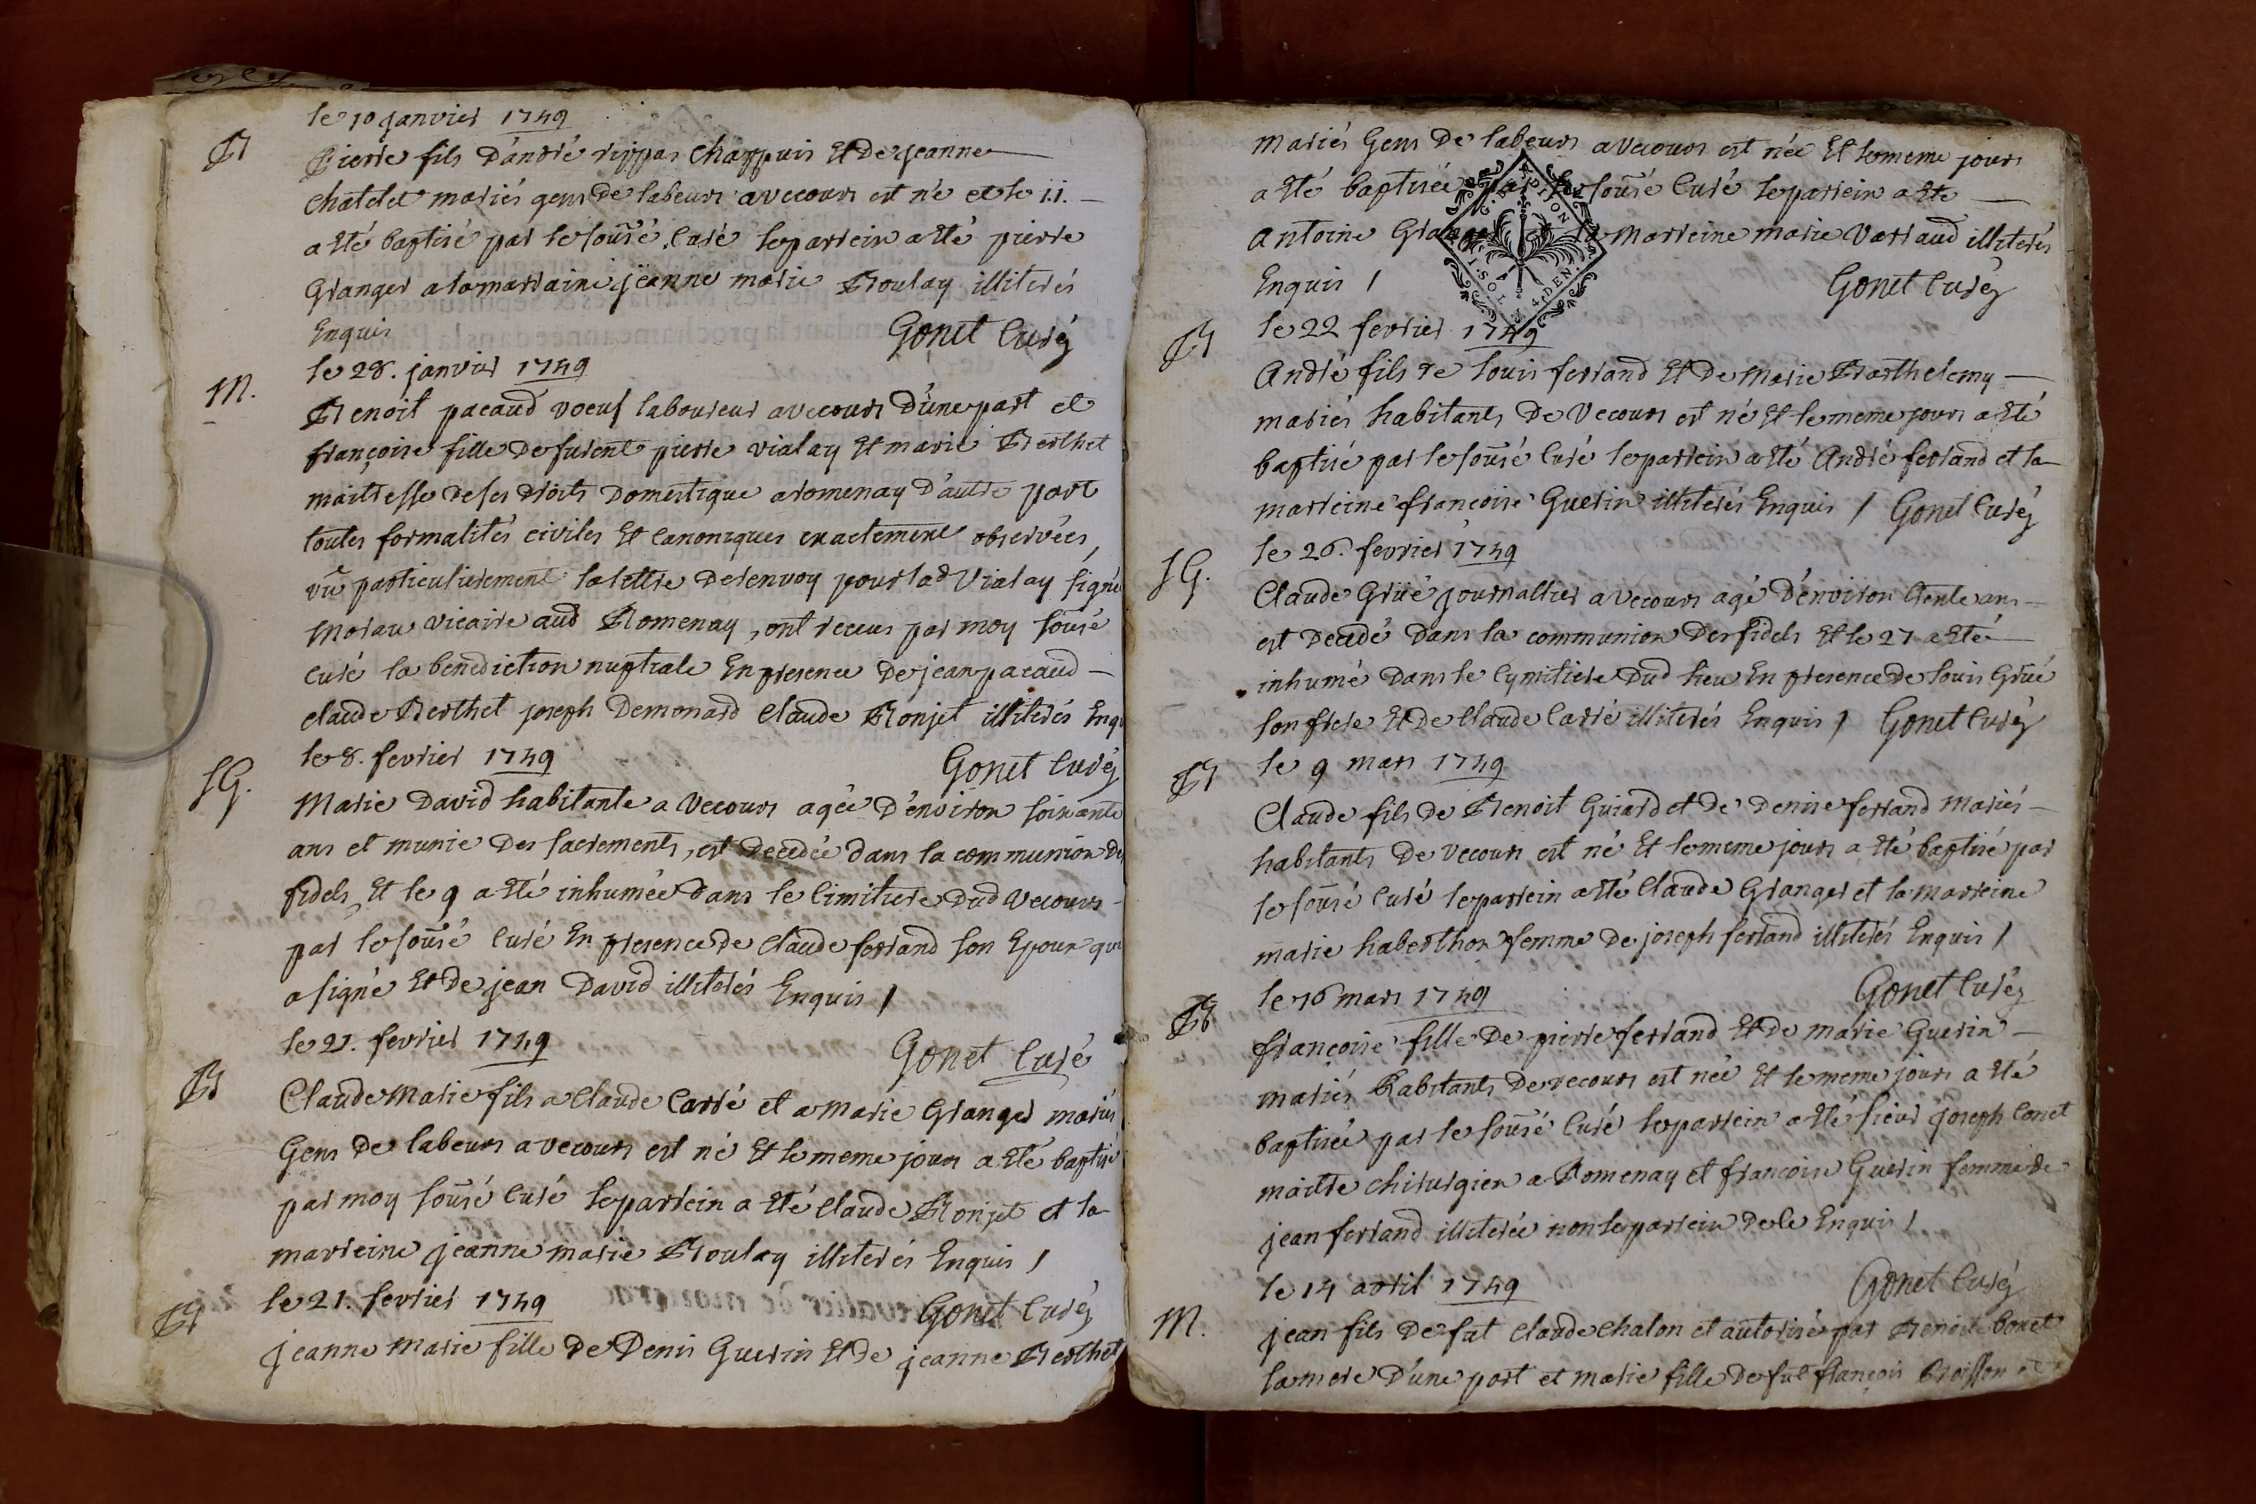 le 10 janvier 1749
B
Pierre fils d'andré rippas Chappuis Et de jeanne
Chatelet mariés gens de labeurs a vecours est né et le 11.
a Eté baptisé par le sousé Curé le parrein a Eté pierre
Granger a la marraine jeanne marie Boulay illiterés
Enquis
Gonet Curé
le 28. janvier 1749
M.
Benoit pacaud voeuf laboureur a vecours d'une part et
françoise fille de furent pierre vialay Et marie Berthet
maitresse de ses droits domestique a romenay d'autre part
toutes formalités civiles Et Canoniques exactement observées,
vû particulierement la lettre de renvoy pour lad Vialay signé
Moraw vicaire aud Romenay, ont receus par moy sousé
Curé la benediction nuptiale En presence de jean pacaud
claude Berthet joseph Demonard Claude Bonjet illiterés Enqu
le 8. fevrier 1749
Gonet Curé
SG.
Marie David habitante a Vecours agée d'environ soixante
ans et munie des sacrements, est decedée dans la communion de
fidels Et le 9 a Eté inhumée dans le Cimitiere dud Vecours
par le sousé Curé En presence de Claude ferrand son Epoux qui
a signé Et de jean David illiterés Enquis /
le 21. fevrier 1749
Gonet Curé
B
Claude Marie fils a Claude Carré et a Marie Granger mariés
Gens de labeurs a vecours est né Et le meme jours a Eté baptisé
par moy sousé Curé le parrein a Eté Claude Bonjet et la
marreine jeanne marie Boulay illiterés Enquis /
le 21. fevrier 1749
Gonet Curé
B
jeanne Marie fille de Denis Guerin Et de jeanne Berthet
mariés Gens de labeurs a vecours est née Et le meme jours
a Eté baptisée par le sousé Curé le parrein a Eté
Antoine Granger et la Marreine marie Varraud illiterés
Enquis /
Gonet Curé
G. DE DIJON
1. SOL 4. DEN.
le 22 fevrier 1749
B
André fils de Louis ferrand Et de Marie Barthelemy
mariés habitants de Vecours est né Et le meme jours a Eté
baptisé par le sousé Curé le parrein a Eté André ferrand et la
marreine françoise Guerin illiterés Enquis / Gonet Curé
le 26. fevrier 1749
SG.
Claude Grüé journallier a Vecours agé d'environ trente ans
est decedé dans la communion des fidels Et le 27 a Eté
inhumé dans le Cymitiere dud lieu En presence de louis Grüé
son frere Et de Claude Carré illiterés Enquis / Gonet Curé
le 9 mars 1749
B
Claude fils de Benoit Guiard et de Denise ferrand mariés
habitants de vecours est né Et le meme jours a Eté baptisé par
le sousé Curé le parrein a Eté Claude Granger et la Marreine
marie haberthon femme de joseph ferrand illiterés Enquis /
le 16 mars 1749
Gonet Curé
B
françoise fille de pierre ferrand Et de marie Guerin
mariés habitants de vecours est née Et le meme jours a Eté
baptisée par le sousé Curé le parrein a Eté sieur joseph Conet
maitre chirurgien a Romenay et françoise Guerin femme de
jean ferrand illiterée non le parrein de Ce Enquis /
le 14 avril 1749
Gonet Curé
M.
jean fils de fut Claude Chalon et autorisé par Benoite bonet
sa mere d'une part et marie fille de fut françois Boisson et